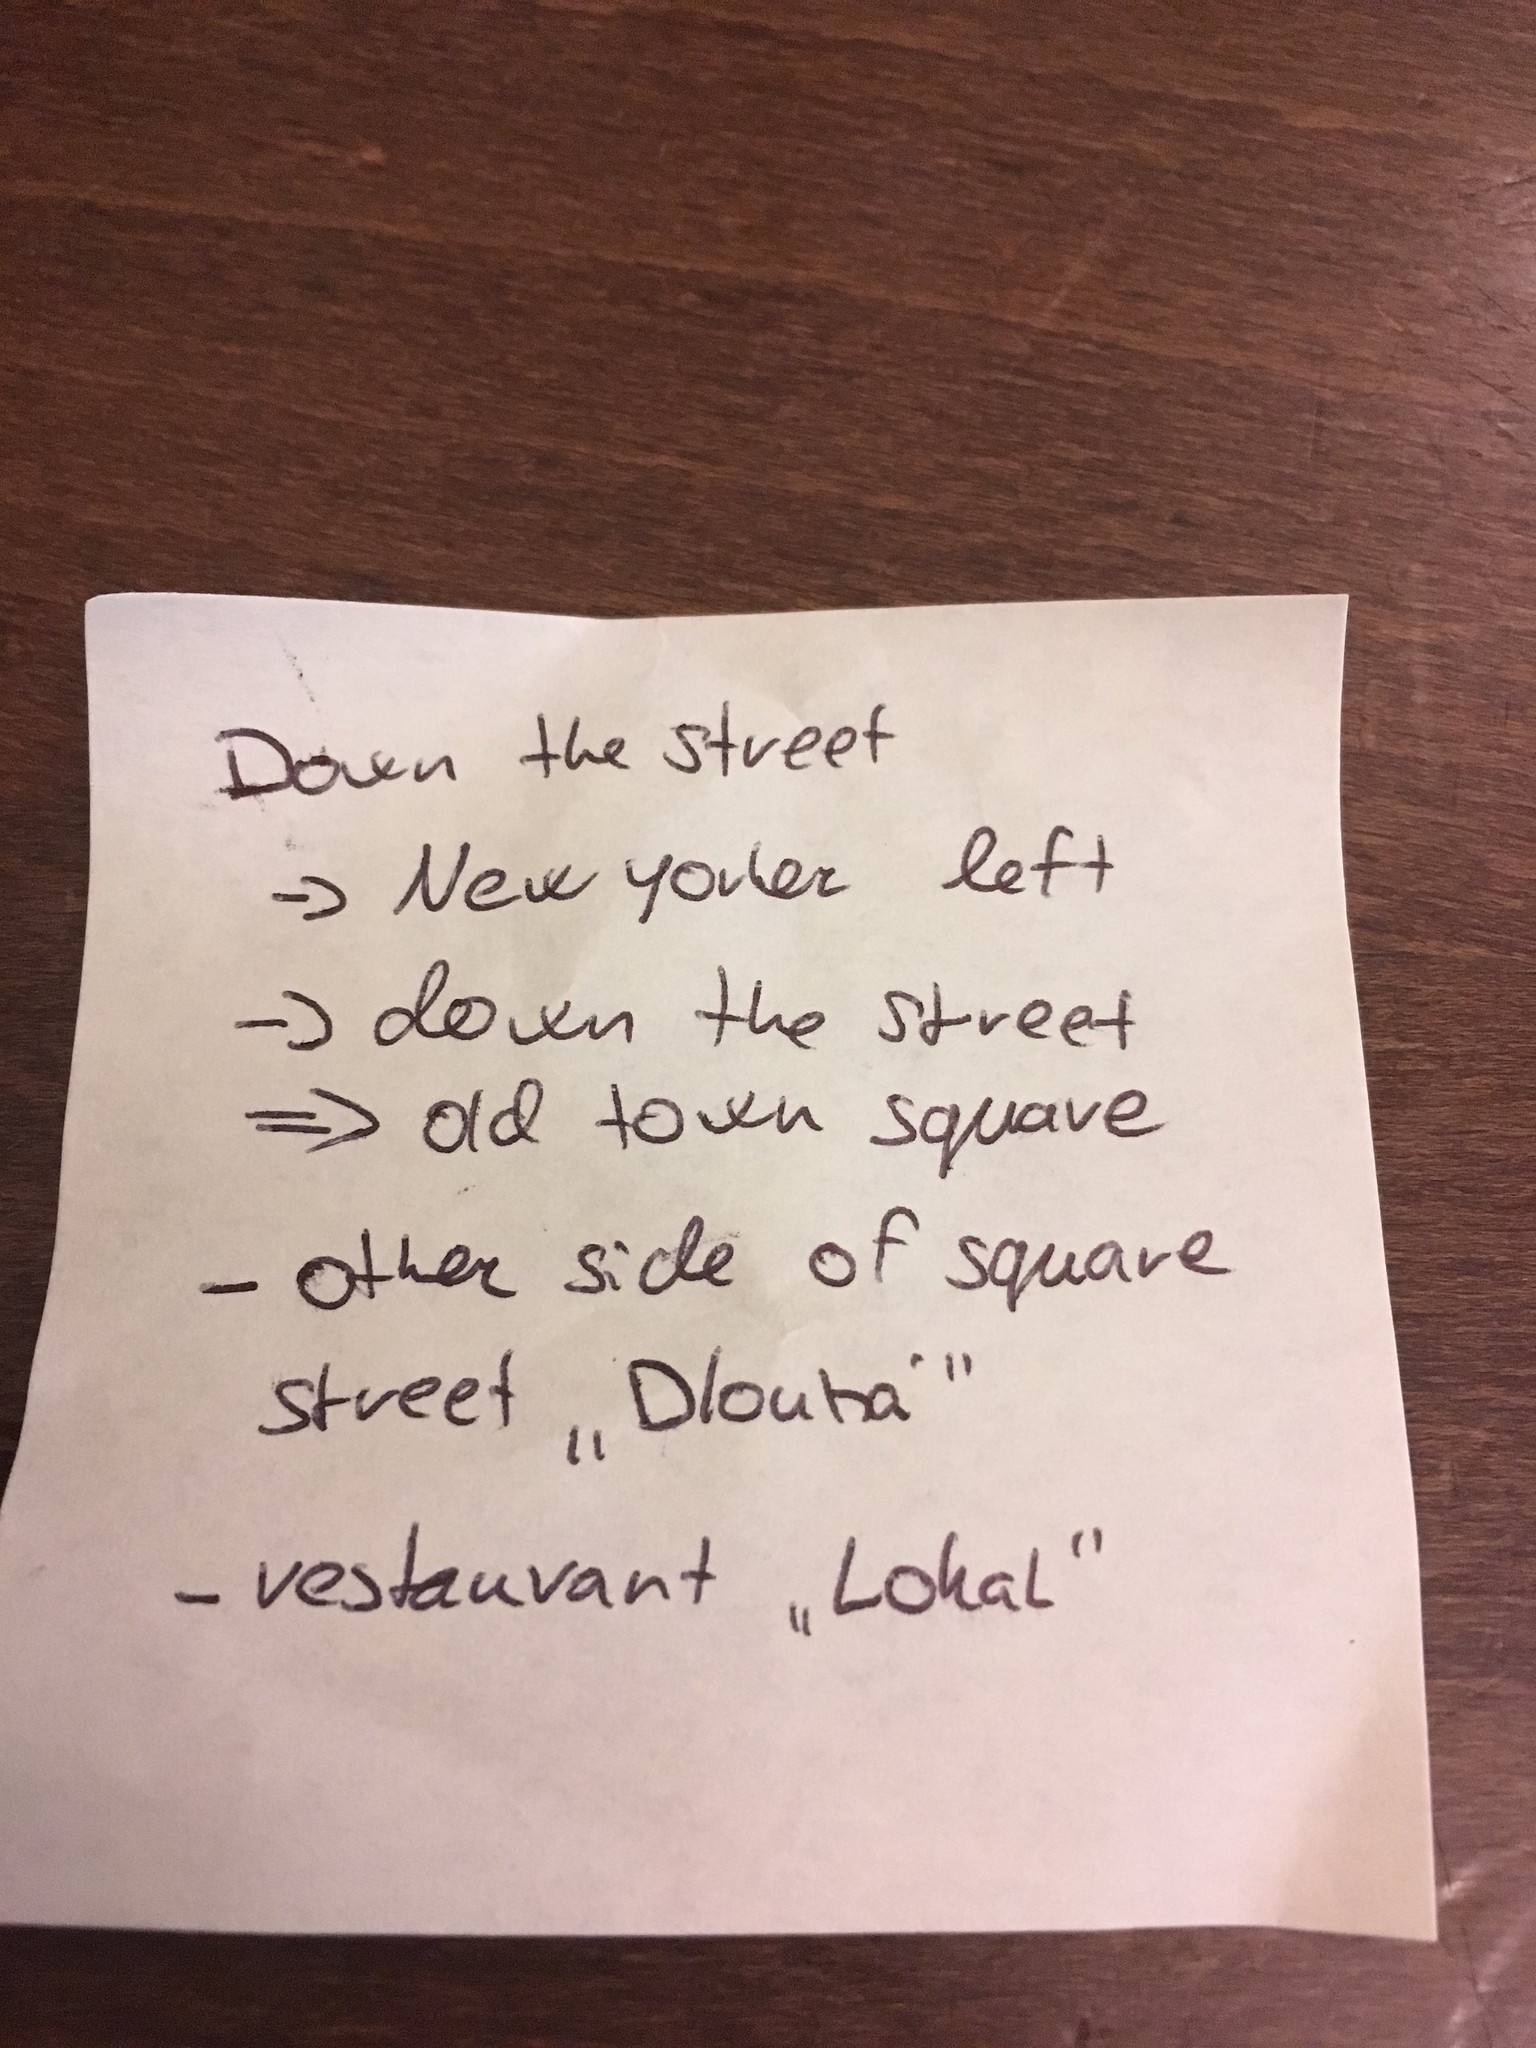 Down the street
-> New yorker left
-> down the street
=> old town square
- other side of square
street „Dlouhá"
- restaurant „Lokal"